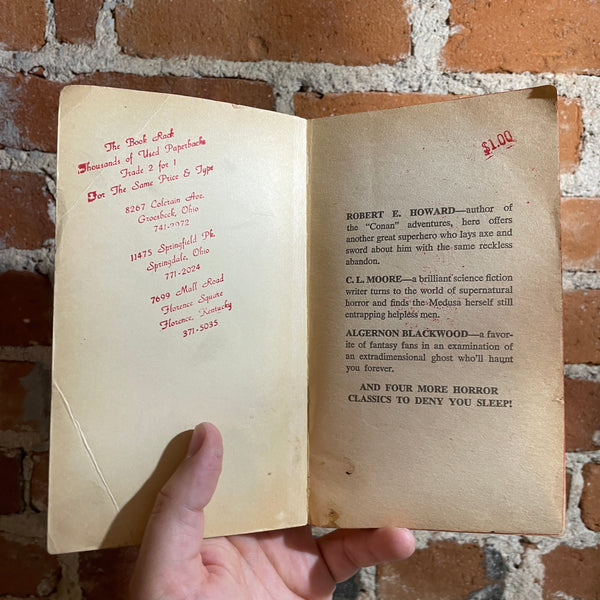 The Book Rack
Thousands of Used Paperbacks
Trade 2 for 1
For The Same Price & Type
8267 Colerain Ave.
Groesbeck, Ohio
741-2972
11475 Springfield Pk.
Springdale, Ohio
771-2024
7699 Mall Road
Florence Square
Florence, Kentucky
371-5035
$1.00
ROBERT E. HOWARD—author of
the “Conan” adventures, here offers
another great superhero who lays axe and
sword about him with the same reckless
abandon.
C. L. MOORE—a brilliant science fiction
writer turns to the world of supernatural
horror and finds the Medusa herself still
entrapping helpless men.
ALGERNON BLACKWOOD—a favor-
ite of fantasy fans in an examination of
an extradimensional ghost who'll haunt
you forever.
AND FOUR MORE HORROR
CLASSICS TO DENY YOU SLEEP!